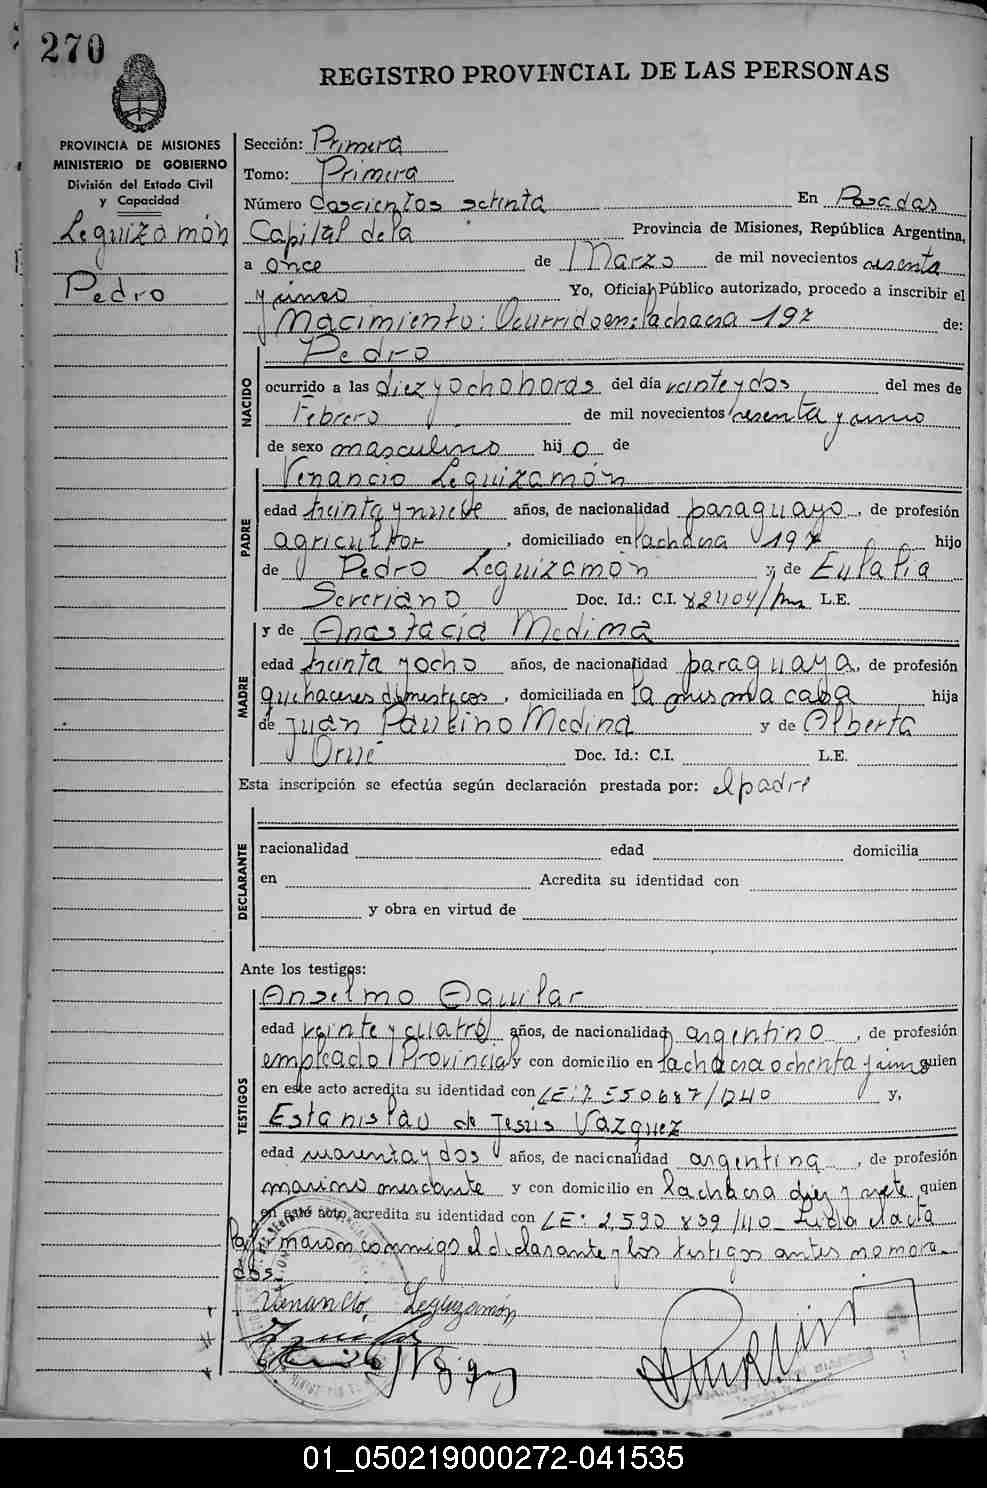 270
REGISTRO PROVINCIAL DE LAS PERSONAS
PROVINCIA DE MISIONES
MINISTERIO DE GOBIERNO
División del Estado Civil
y Capacidad
Leguizamón
Pedro
Sección: Primera
Tomo: Primera
Número Doscientos setenta En Posadas
Capital de la Provincia de Misiones, República Argentina,
a once de Marzo de mil novecientos sesenta
y cinco Yo, Oficial Público autorizado, procedo a inscribir el
Nacimiento: Ocurrido en: la chacra 197 de:
Pedro
NACIDO
ocurrido a las diez y ocho horas del día veinte y dos del mes de
Febrero de mil novecientos sesenta y cinco
de sexo masculino hij o de
Venancio Leguizamón
PADRE
edad treinta y nueve años, de nacionalidad paraguayo, de profesión
agricultor, domiciliado en la chacra 197 hijo
de Pedro Leguizamón y de Eulalia
Severiano Doc. Id.: C.I. L.E.
y de Anastacia Medina
MADRE
edad treinta y ocho años, de nacionalidad paraguaya, de profesión
quehaceres domesticos, domiciliada en la misma casa hija
de Juan Paulino Medina y de Alberta
Orué Doc. Id.: C.I. L.E.
Esta inscripción se efectúa según declaración prestada por: el padre
DECLARANTE
nacionalidad edad domicilia
en Acredita su identidad con
y obra en virtud de
Ante los testigos:
Anselmo Aguilar
TESTIGOS
edad veinte y cuatro años, de nacionalidad argentino, de profesión
empleado Provincial y con domicilio en la chacra ochenta y cinco quien
en este acto acredita su identidad con LE: 7.550.687/D40 y,
Estanislao de Jesús Vazquez
edad cuarenta y dos años, de nacionalidad argentina, de profesión
marino mercante y con domicilio en la chacra diez y siete, quien
en este acto acredita su identidad con LE: 2.590.839/40 Leida el acta
la firmaron conmigo el declarante y los testigos antes nombra-
dos.
Venancio Leguizamón
01_050219000272-041535